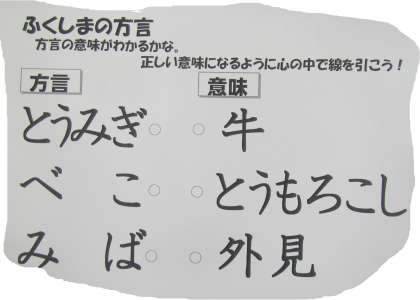 ふくしまの方言
方言の意味がわかるかな。
正しい意味になるように心の中で線を引こう！
方言 意味
とうみぎ○ ○牛
べこ○ ○とうもろこし
みば○ ○外見